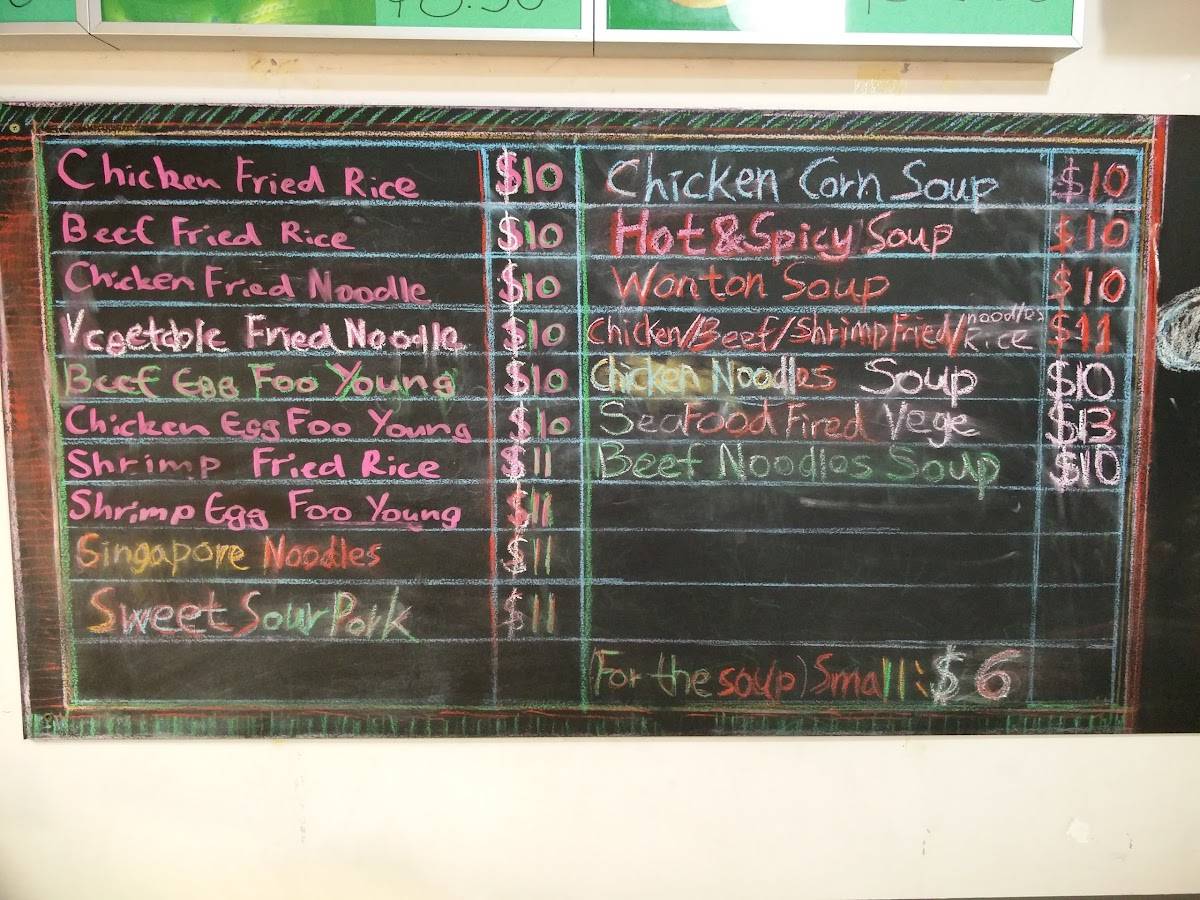 Chicken Fried Rice $10
Beef Fried Rice $10
Chicken Fried Noodle $10
Vegetable Fried Noodle $10
Beef Egg Foo Young $10
Chicken Egg Foo Young $10
Shrimp Fried Rice $11
Shrimp Egg Foo Young $11
Singapore Noodles $11
Sweet Sour Pork $11
Chicken Corn Soup $10
Hot & Spicy Soup $10
Wonton Soup $10
Chicken/Beef/Shrimp Fried/noodles Rice $11
Chicken Noodles Soup $10
Seafood Fired Vege $13
Beef Noodles Soup $10
(For the soup) Small: $6